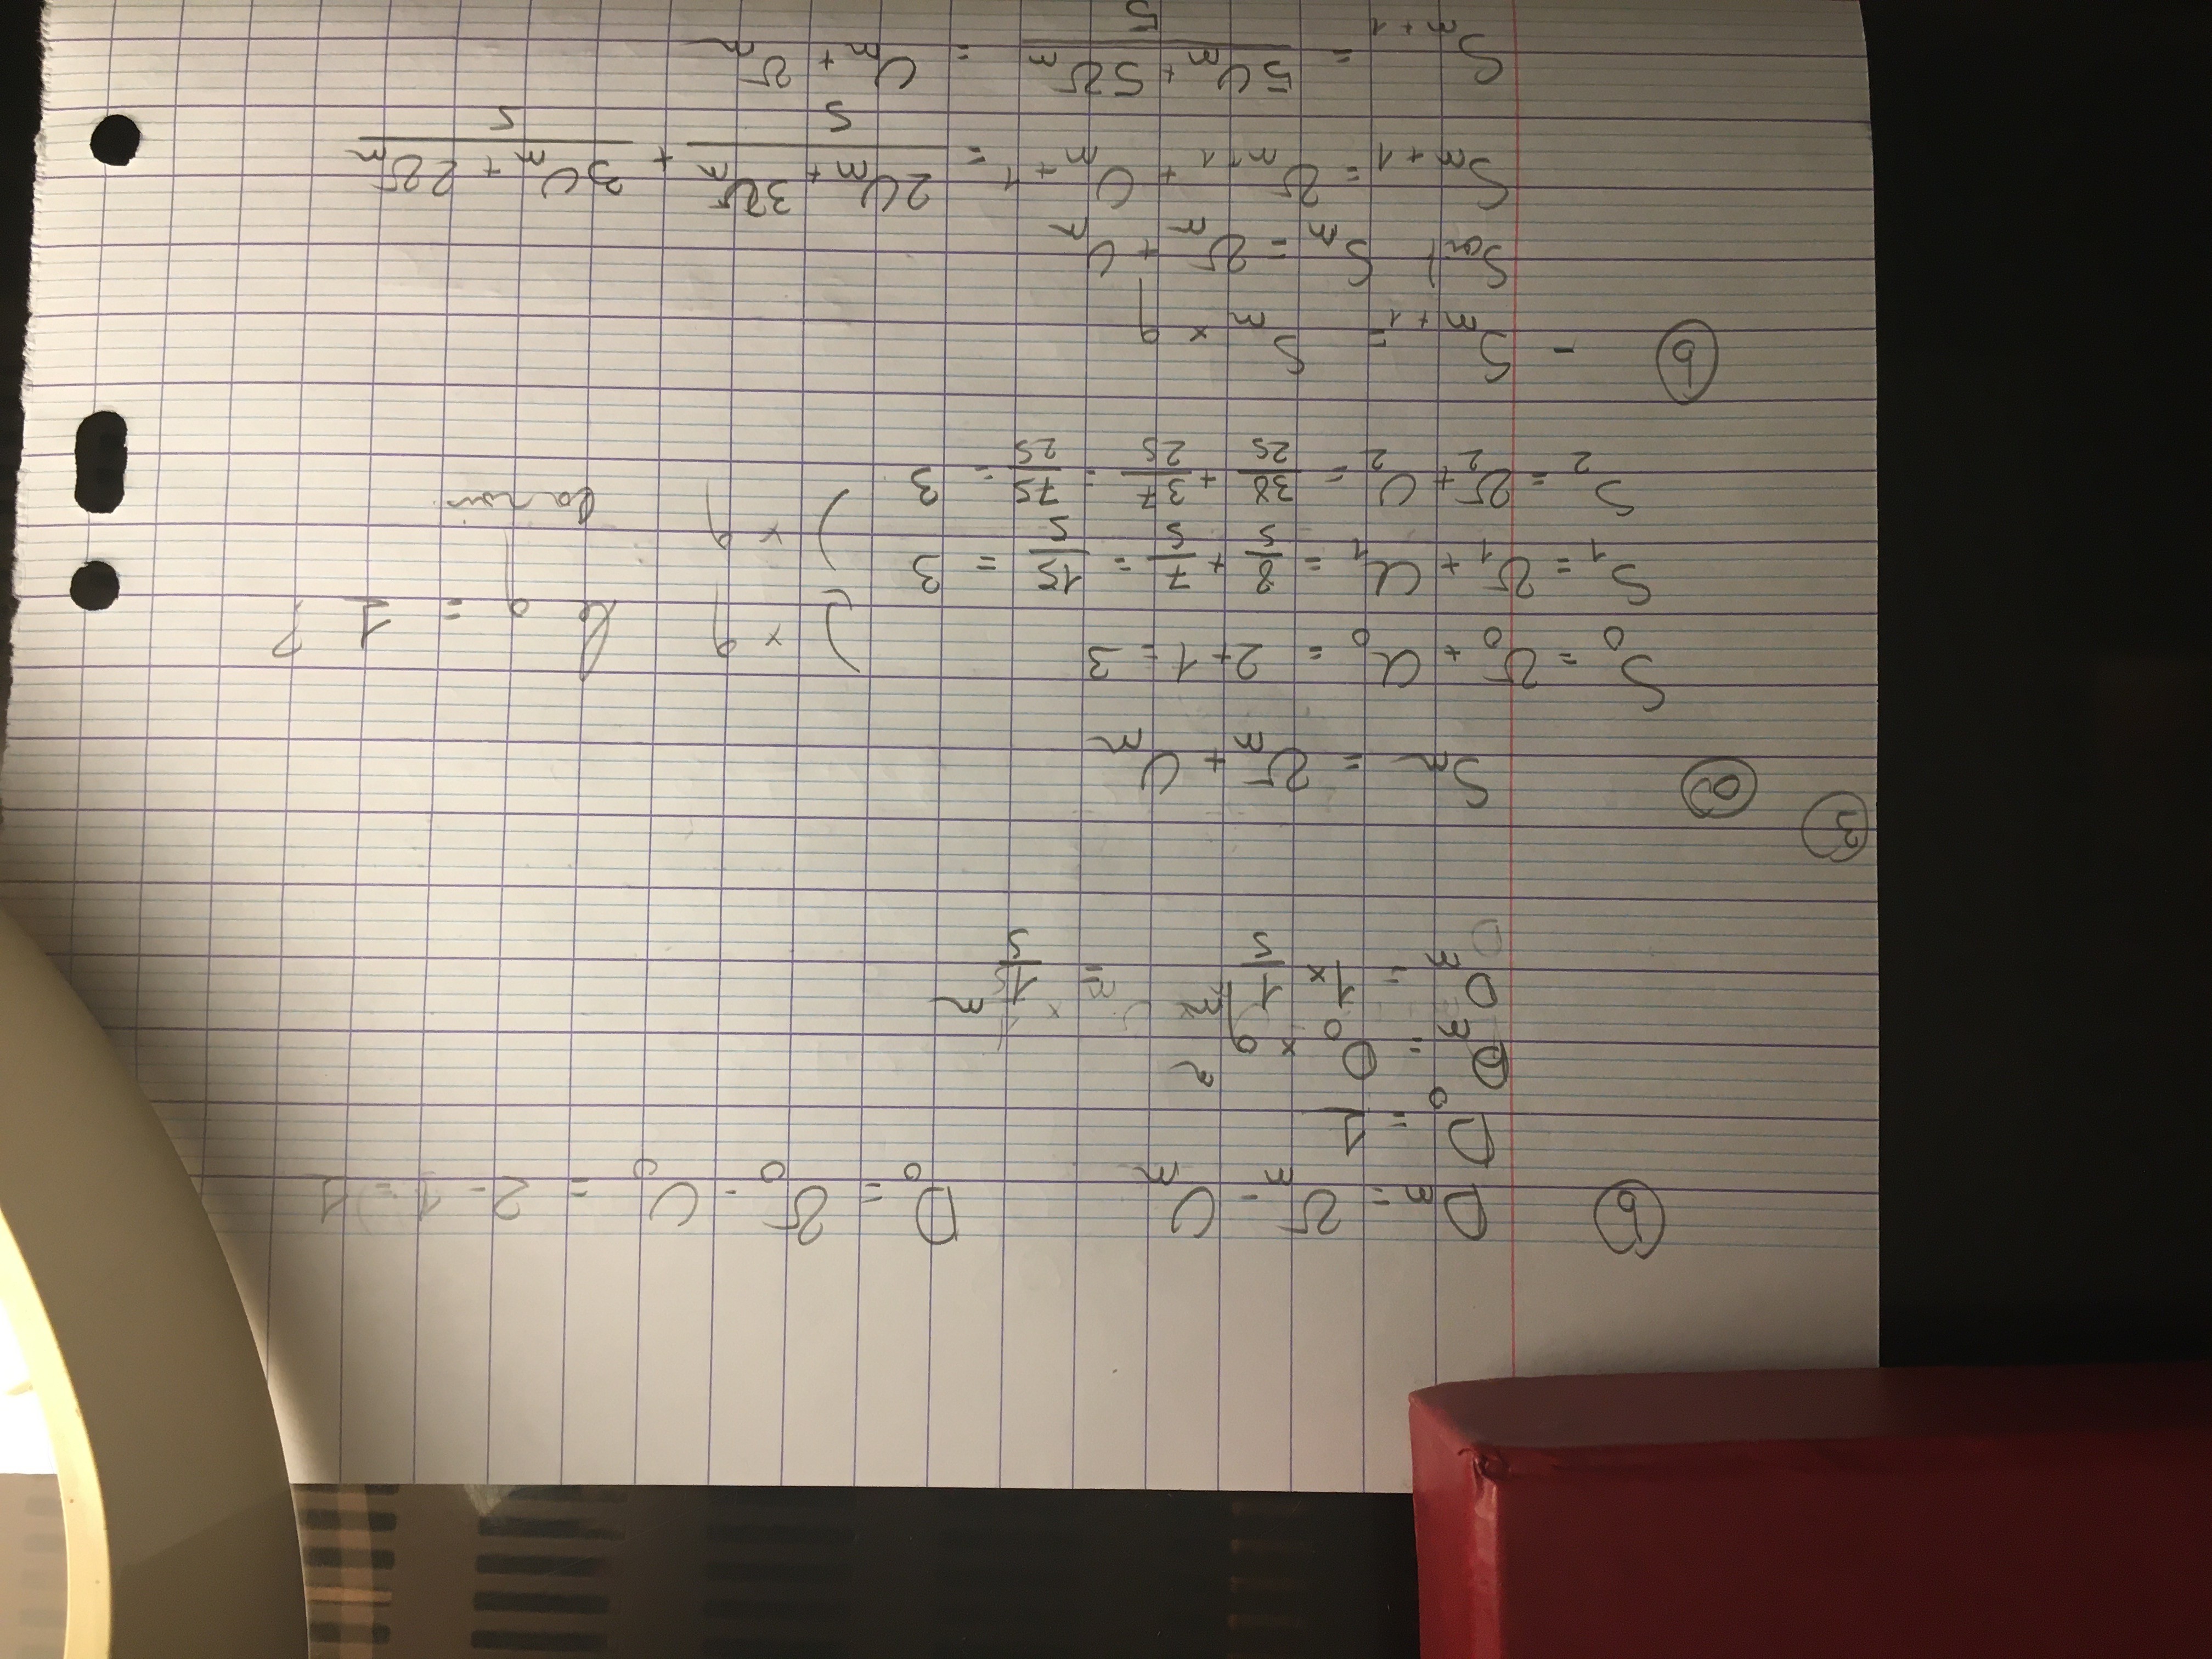 b D_n = v_n - U_n D_0 = v_0 - U_0 = 2 - 1 = 1
D_0 = 1
D_n = D_0 × q^n
D_n = 1 × 1/5^n = 1/5^n
3 a S_n = v_n + U_n
S_0 = v_0 + U_0 = 2 + 1 = 3
) × q le q = 1 ?
S_1 = v_1 + U_1 = 8/5 + 7/5 = 15/5 = 3
) × q
S_2 = v_2 + U_2 = 38/25 + 37/25 = 75/25 = 3
b - S_n+1 = S_n × q
Soit S_n = v_n + U_n
S_n+1 = v_n+1 + U_n+1 = (2U_n + 3v_n)/5 + (3U_n + 2v_n)/5
S_n+1 = (5U_n + 5v_n)/5 = U_n + v_n